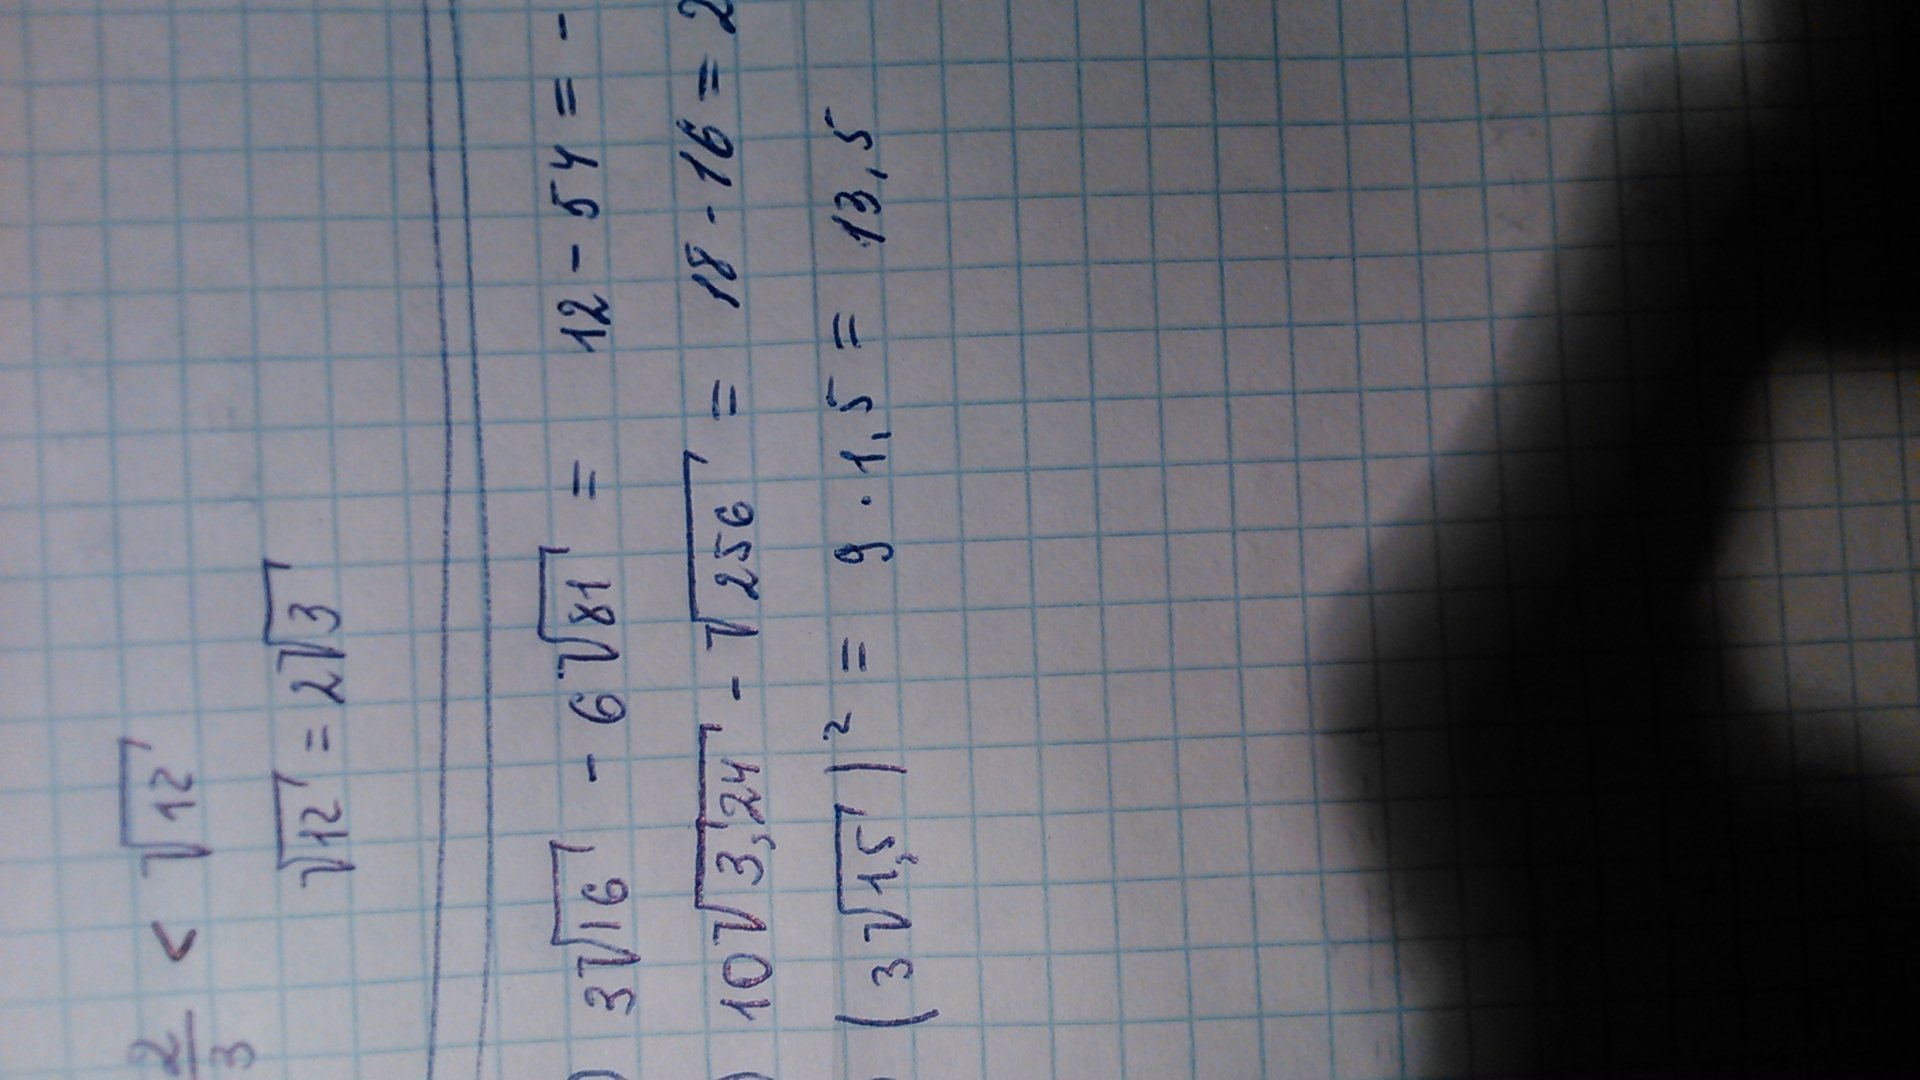 2/3 < √12
√12 = 2√3
) 3√16 - 6√81 = 12 - 54 = -
) 10√3,24 - √256 = 18 - 16 = 2
(3√1,5)² = 9 · 1,5 = 13,5